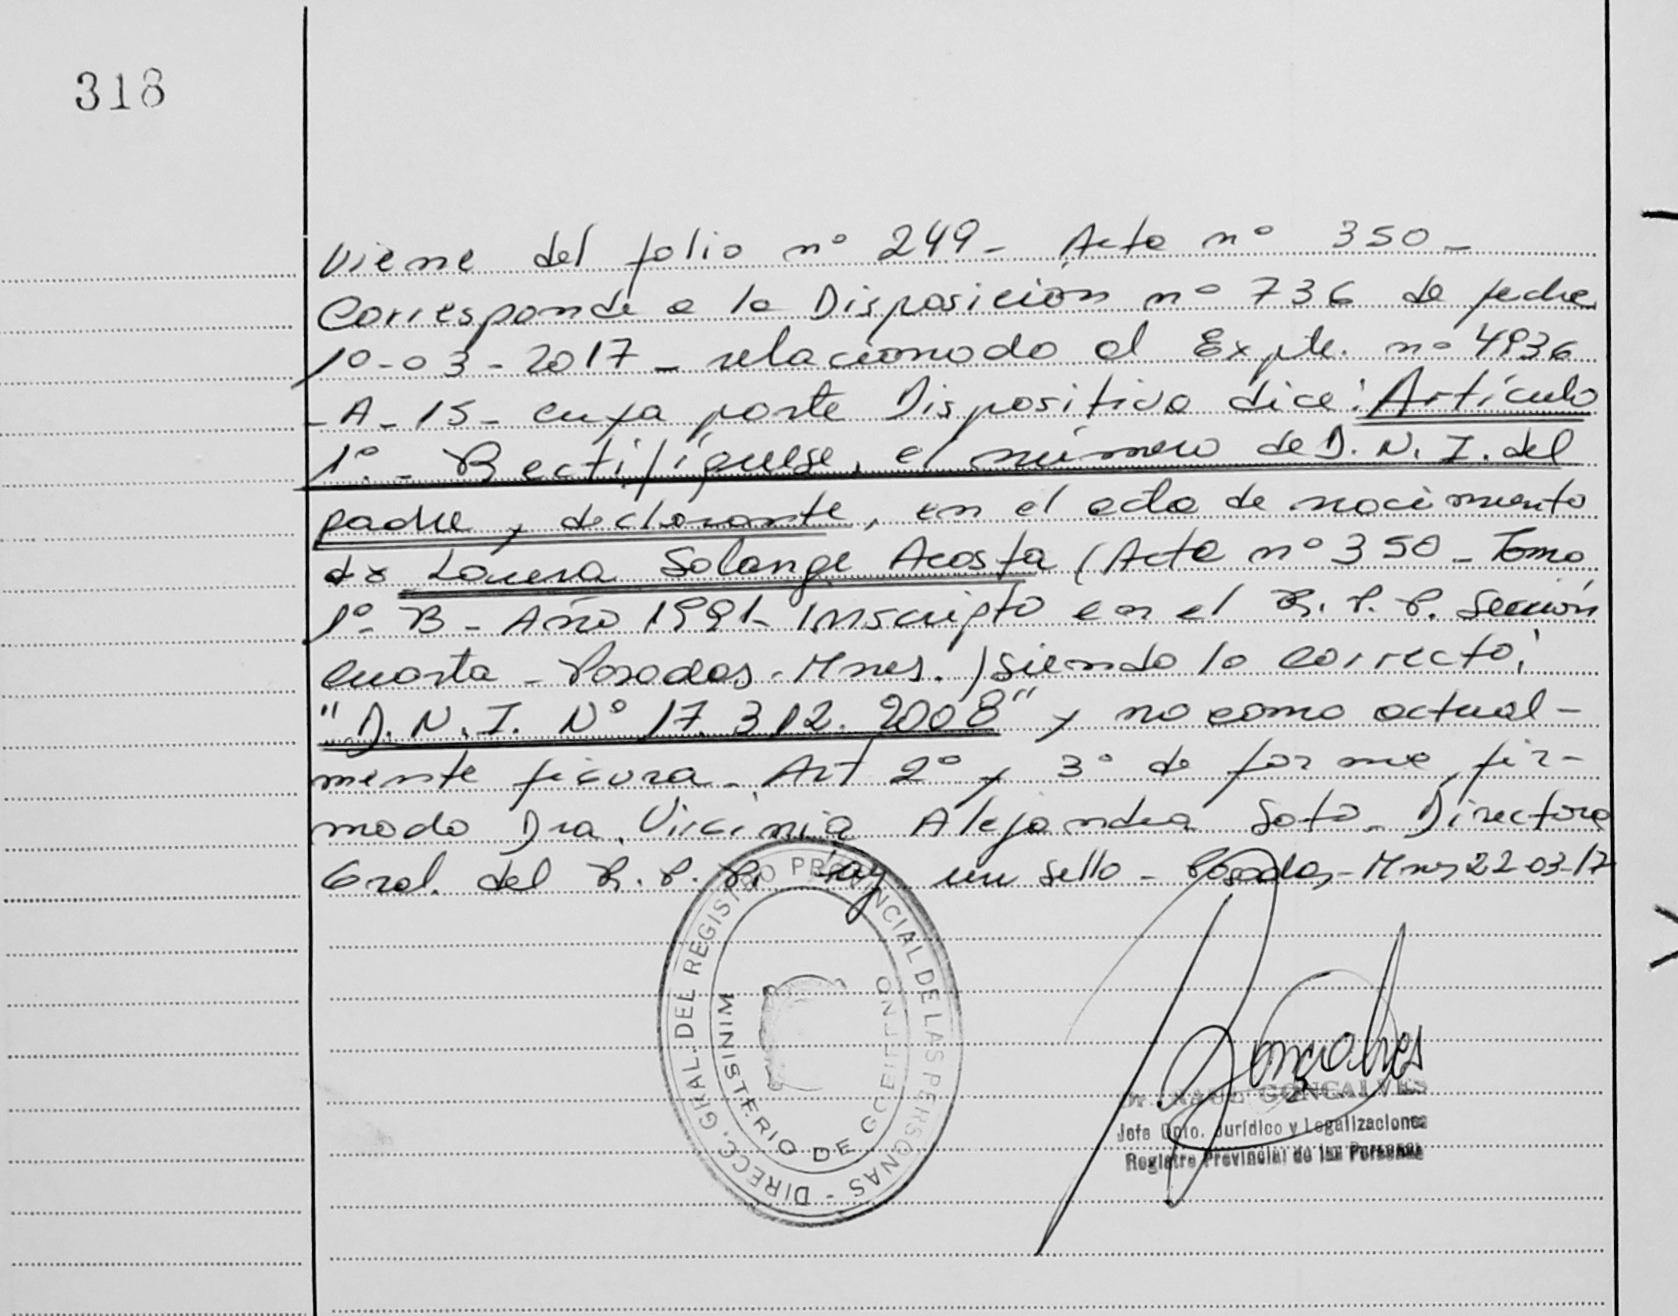 318
Viene del folio nº 249- Acta nº 350-
Corresponde a la Disposición nº 736 de fecha
1º-03-2017- relacionado al Expte. nº 4936
-A-15- cuya parte Dispositiva dice: Artículo
1º.- Rectifíquese, el número de D.N.I. del
padre y declarante, en el acta de nacimiento
de Lorena Solange Acosta (Acta nº 350- Tomo
1º- B- Año 1991- Inscripto en el R.P.P. Sección
Cuarta- Posadas- Mnes.) siendo lo correcto:
"D.N.I. Nº 17.312.2008" y no como actual-
mente figura. Art 2º y 3º de forma, fir-
mado Dra. Virginia Alejandra Soto- Directora
Gral. del R.P.P. Hay un sello- Posadas- Mnes 22-03-17
DIRECC. GRAL. DEL REGISTRO PROVINCIAL DE LAS PERSONAS -
MINISTERIO DE GOBIERNO
Goncalves
Dr. RAUL GONCALVES
Jefe Dpto. Jurídico y Legalizaciones
Registro Provincial de las Personas